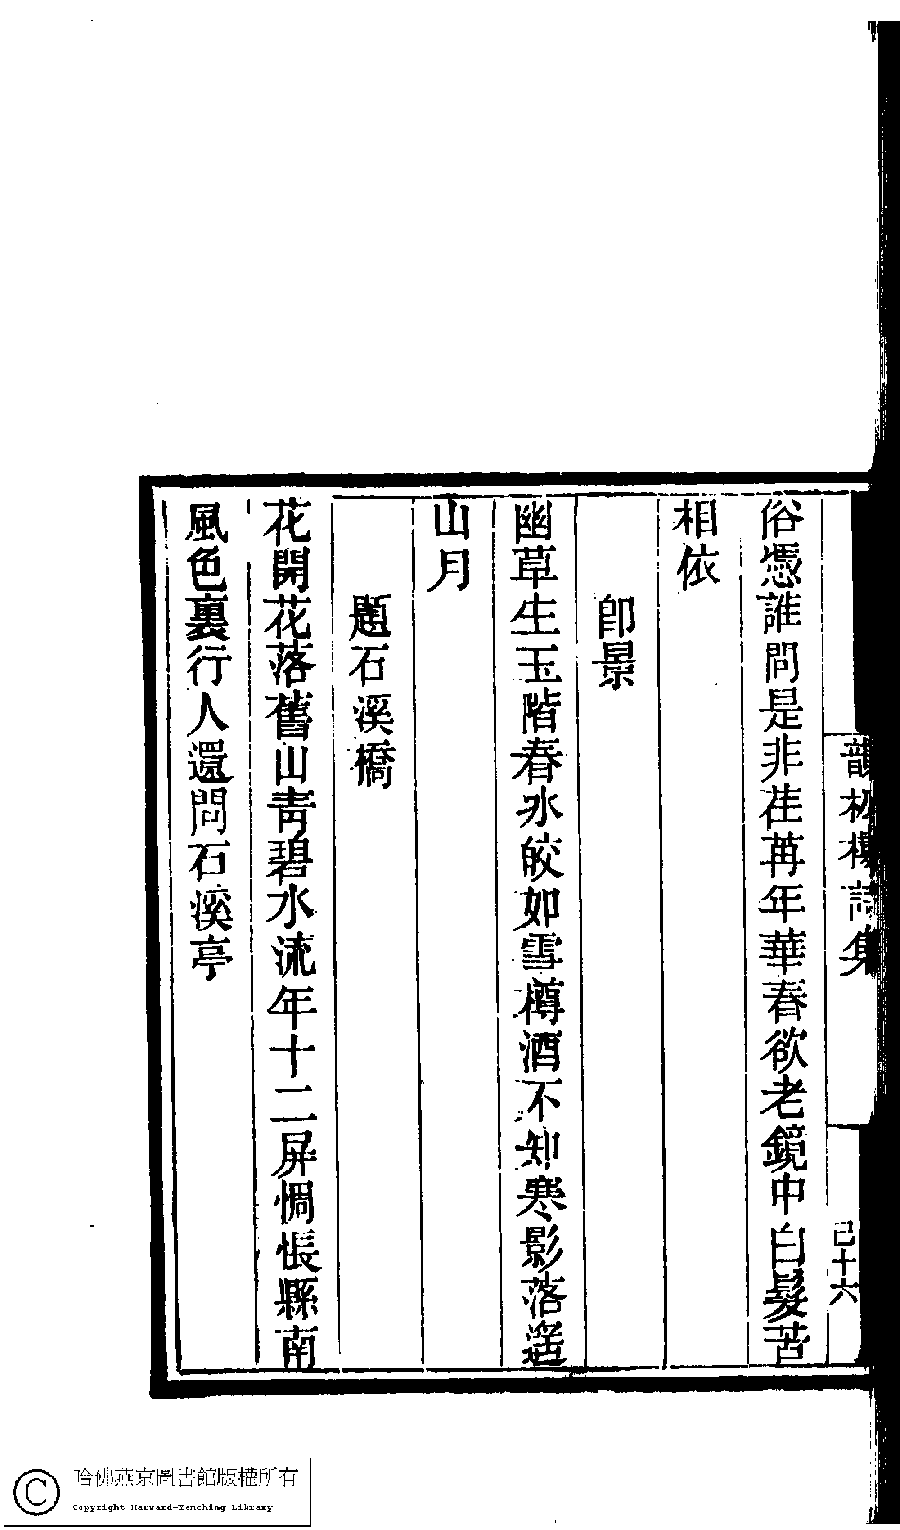 韻松樓詩集
己十六
俗憑誰問是非荏苒年華春欲老鏡中白髮苦
相依
卽景
幽草生玉階春水皎如雪樽酒不知寒影落遙
山月
題石溪橋
花開花落舊山靑碧水流年十二屏惆悵縣南
風色裏行人還問石溪亭
哈佛燕京圖書館版權所有
Copyright Harvard-Yenching Library